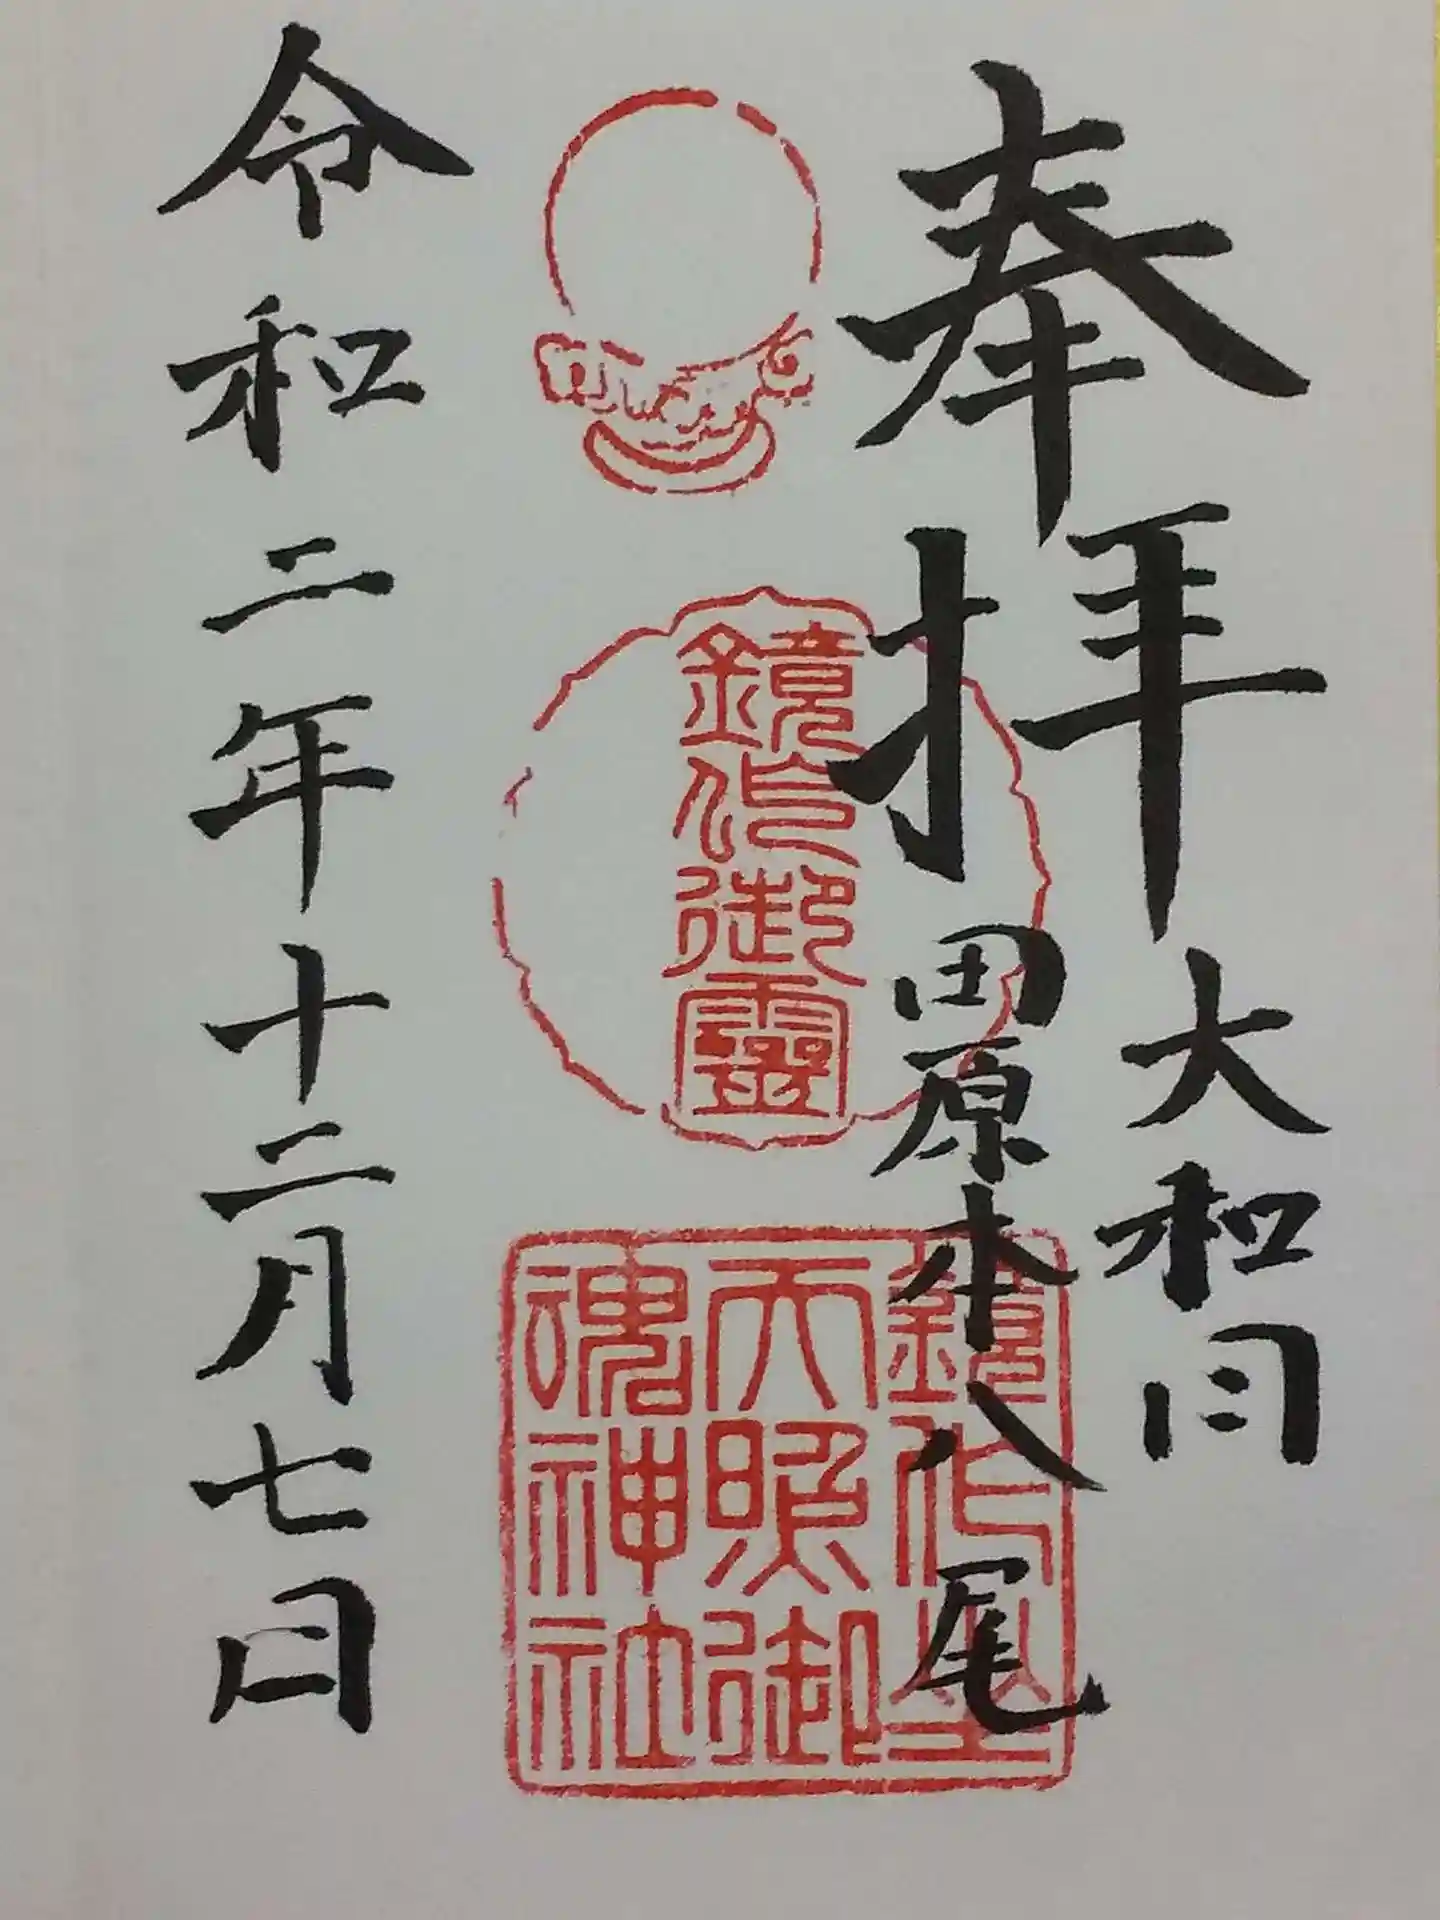 奉拝
大和国
田原本八尾
鏡作御靈
鏡作坐
天照御
魂神社
令和二年十二月七日